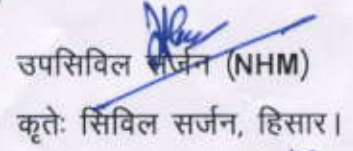 उपसिविल सर्जन (NHM)
कृतेः सिविल सर्जन, हिसार।